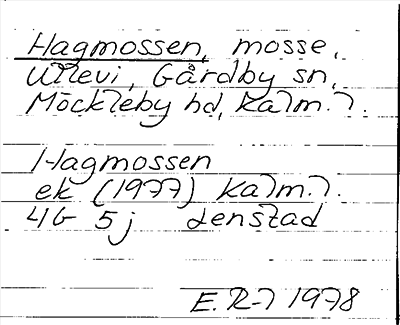 Hagmossen, mosse,
Ullevi, Gårdby sn,
Möckleby hd, Kalm. l.
Hagmossen
ek (1977) Kalm. l.
4G 5j Lenstad
E.R-l 1978